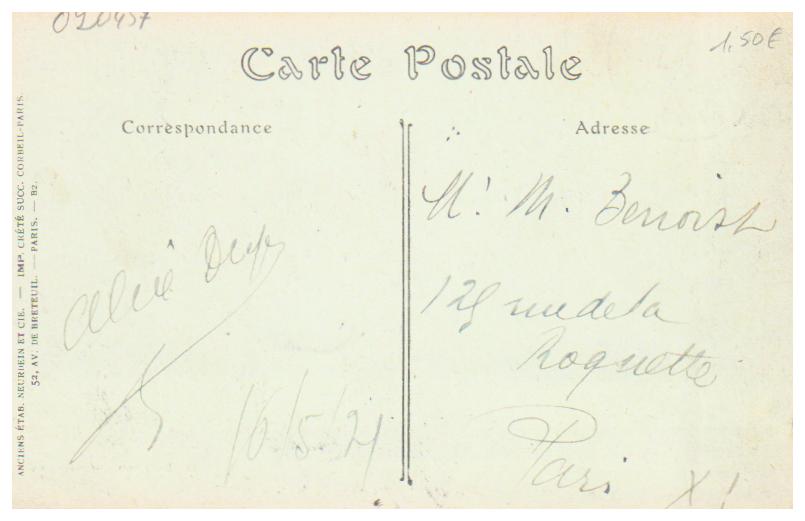 020457
1,50€
Carte Postale
Correspondance
Adresse
ANCIENS ÉTAB. NEURDEIN ET CIE. — IMP. CRÉTÉ SUCC. CORBEIL-PARIS.
52, AV. DE BRETEUIL. — PARIS. — B2.
16/5/21
Mr M. Benoist
125 rue de la
Roquette
Paris XI